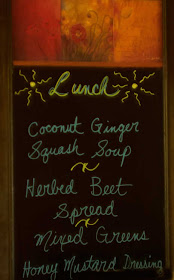 Lunch
Coconut Ginger
Squash Soup
Herbed Beet
Spread
Mixed Greens
Honey Mustard Dressing